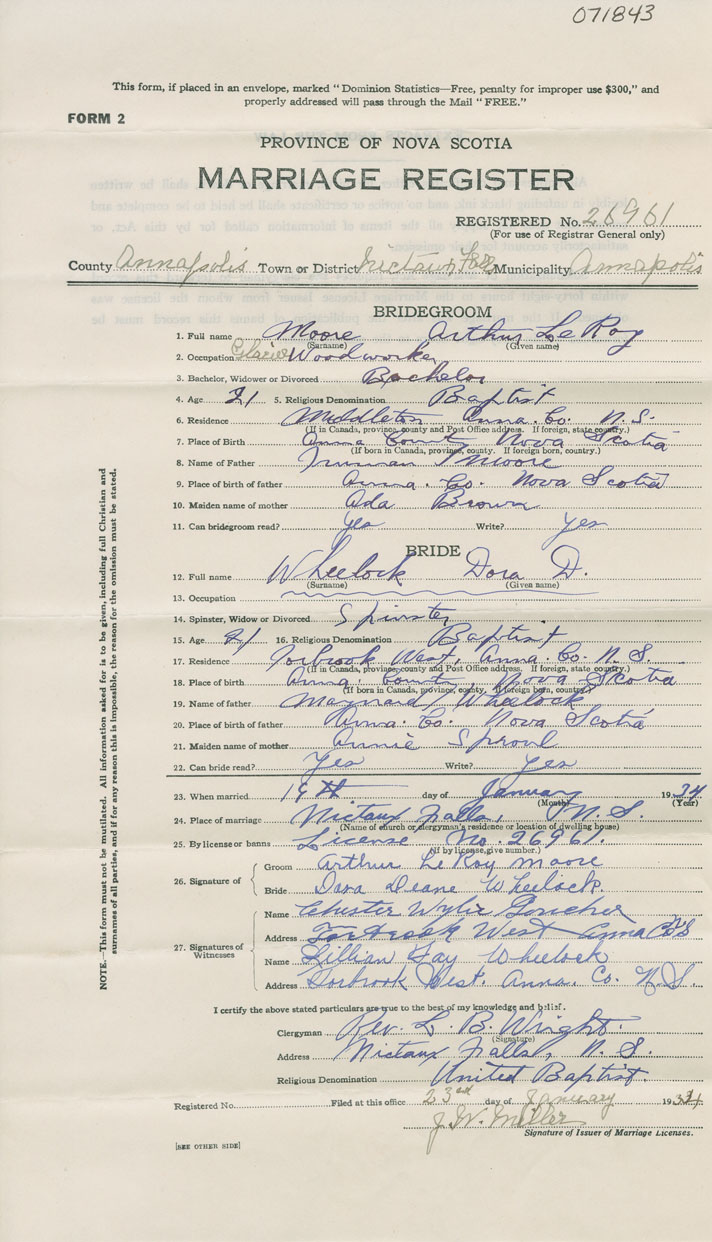 071843
This form, if placed in an envelope, marked "Dominion Statistics—Free, penalty for improper use $300," and
properly addressed will pass through the Mail "FREE."
FORM 2
PROVINCE OF NOVA SCOTIA
MARRIAGE REGISTER
REGISTERED No. 26961
(For use of Registrar General only)
County Annapolis Town or District Nictaux Falls Municipality Annapolis
BRIDEGROOM
1. Full name Moore Arthur LeRoy
(Surname) (Given name)
2. Occupation Woodworker
3. Bachelor, Widower or Divorced Bachelor
4. Age 21 5. Religious Denomination Baptist
6. Residence Middleton Anna. Co. N.S.
(If in Canada, province, county and Post Office address. If foreign, state country.)
7. Place of Birth Anna County Nova Scotia
(If born in Canada, province, county. If foreign born, country.)
8. Name of Father Truman Moore
9. Place of birth of father Anna. Co. Nova Scotia
10. Maiden name of mother Ada Brown
11. Can bridegroom read? Yes Write? Yes
BRIDE
12. Full name Wheelock Dora D.
(Surname) (Given name)
13. Occupation
14. Spinster, Widow or Divorced Spinster
15. Age 21 16. Religious Denomination Baptist
17. Residence Torbrook West, Anna. Co. N.S.
(If in Canada, province, county and Post Office address. If foreign, state country.)
18. Place of birth Anna. County, Nova Scotia
(If born in Canada, province, county. If foreign born, country.)
19. Name of father Maynard Wheelock
20. Place of birth of father Anna. Co. Nova Scotia
21. Maiden name of mother Annie Sproul
22. Can bride read? Yes Write? Yes
23. When married 19th day of January 1934
(Month) (Year)
24. Place of marriage Nictaux Falls, N.S.
(Name of church or clergyman's residence or location of dwelling house)
25. By license or banns License No. 26961.
(If by license, give number.)
26. Signature of
Groom Arthur LeRoy Moore
Bride Dora Deane Wheelock.
27. Signatures of Witnesses
Name Chester Wylie Goucher
Address Torbrook West Anna Co NS
Name Lillian Fay Wheelock
Address Torbrook West. Anna. Co. N.S.
I certify the above stated particulars are true to the best of my knowledge and belief.
Clergyman Rev. L. B. Wright.
(Signature)
Address Nictaux Falls, N.S.
Religious Denomination United Baptist.
Registered No. Filed at this office 23rd day of January 1934
J. W. Miller
Signature of Issuer of Marriage Licenses.
[SEE OTHER SIDE]
NOTE.—This form must not be mutilated. All information asked for is to be given, including full Christian and
surnames of all parties, and if for any reason this is impossible, the reason for the omission must be stated.